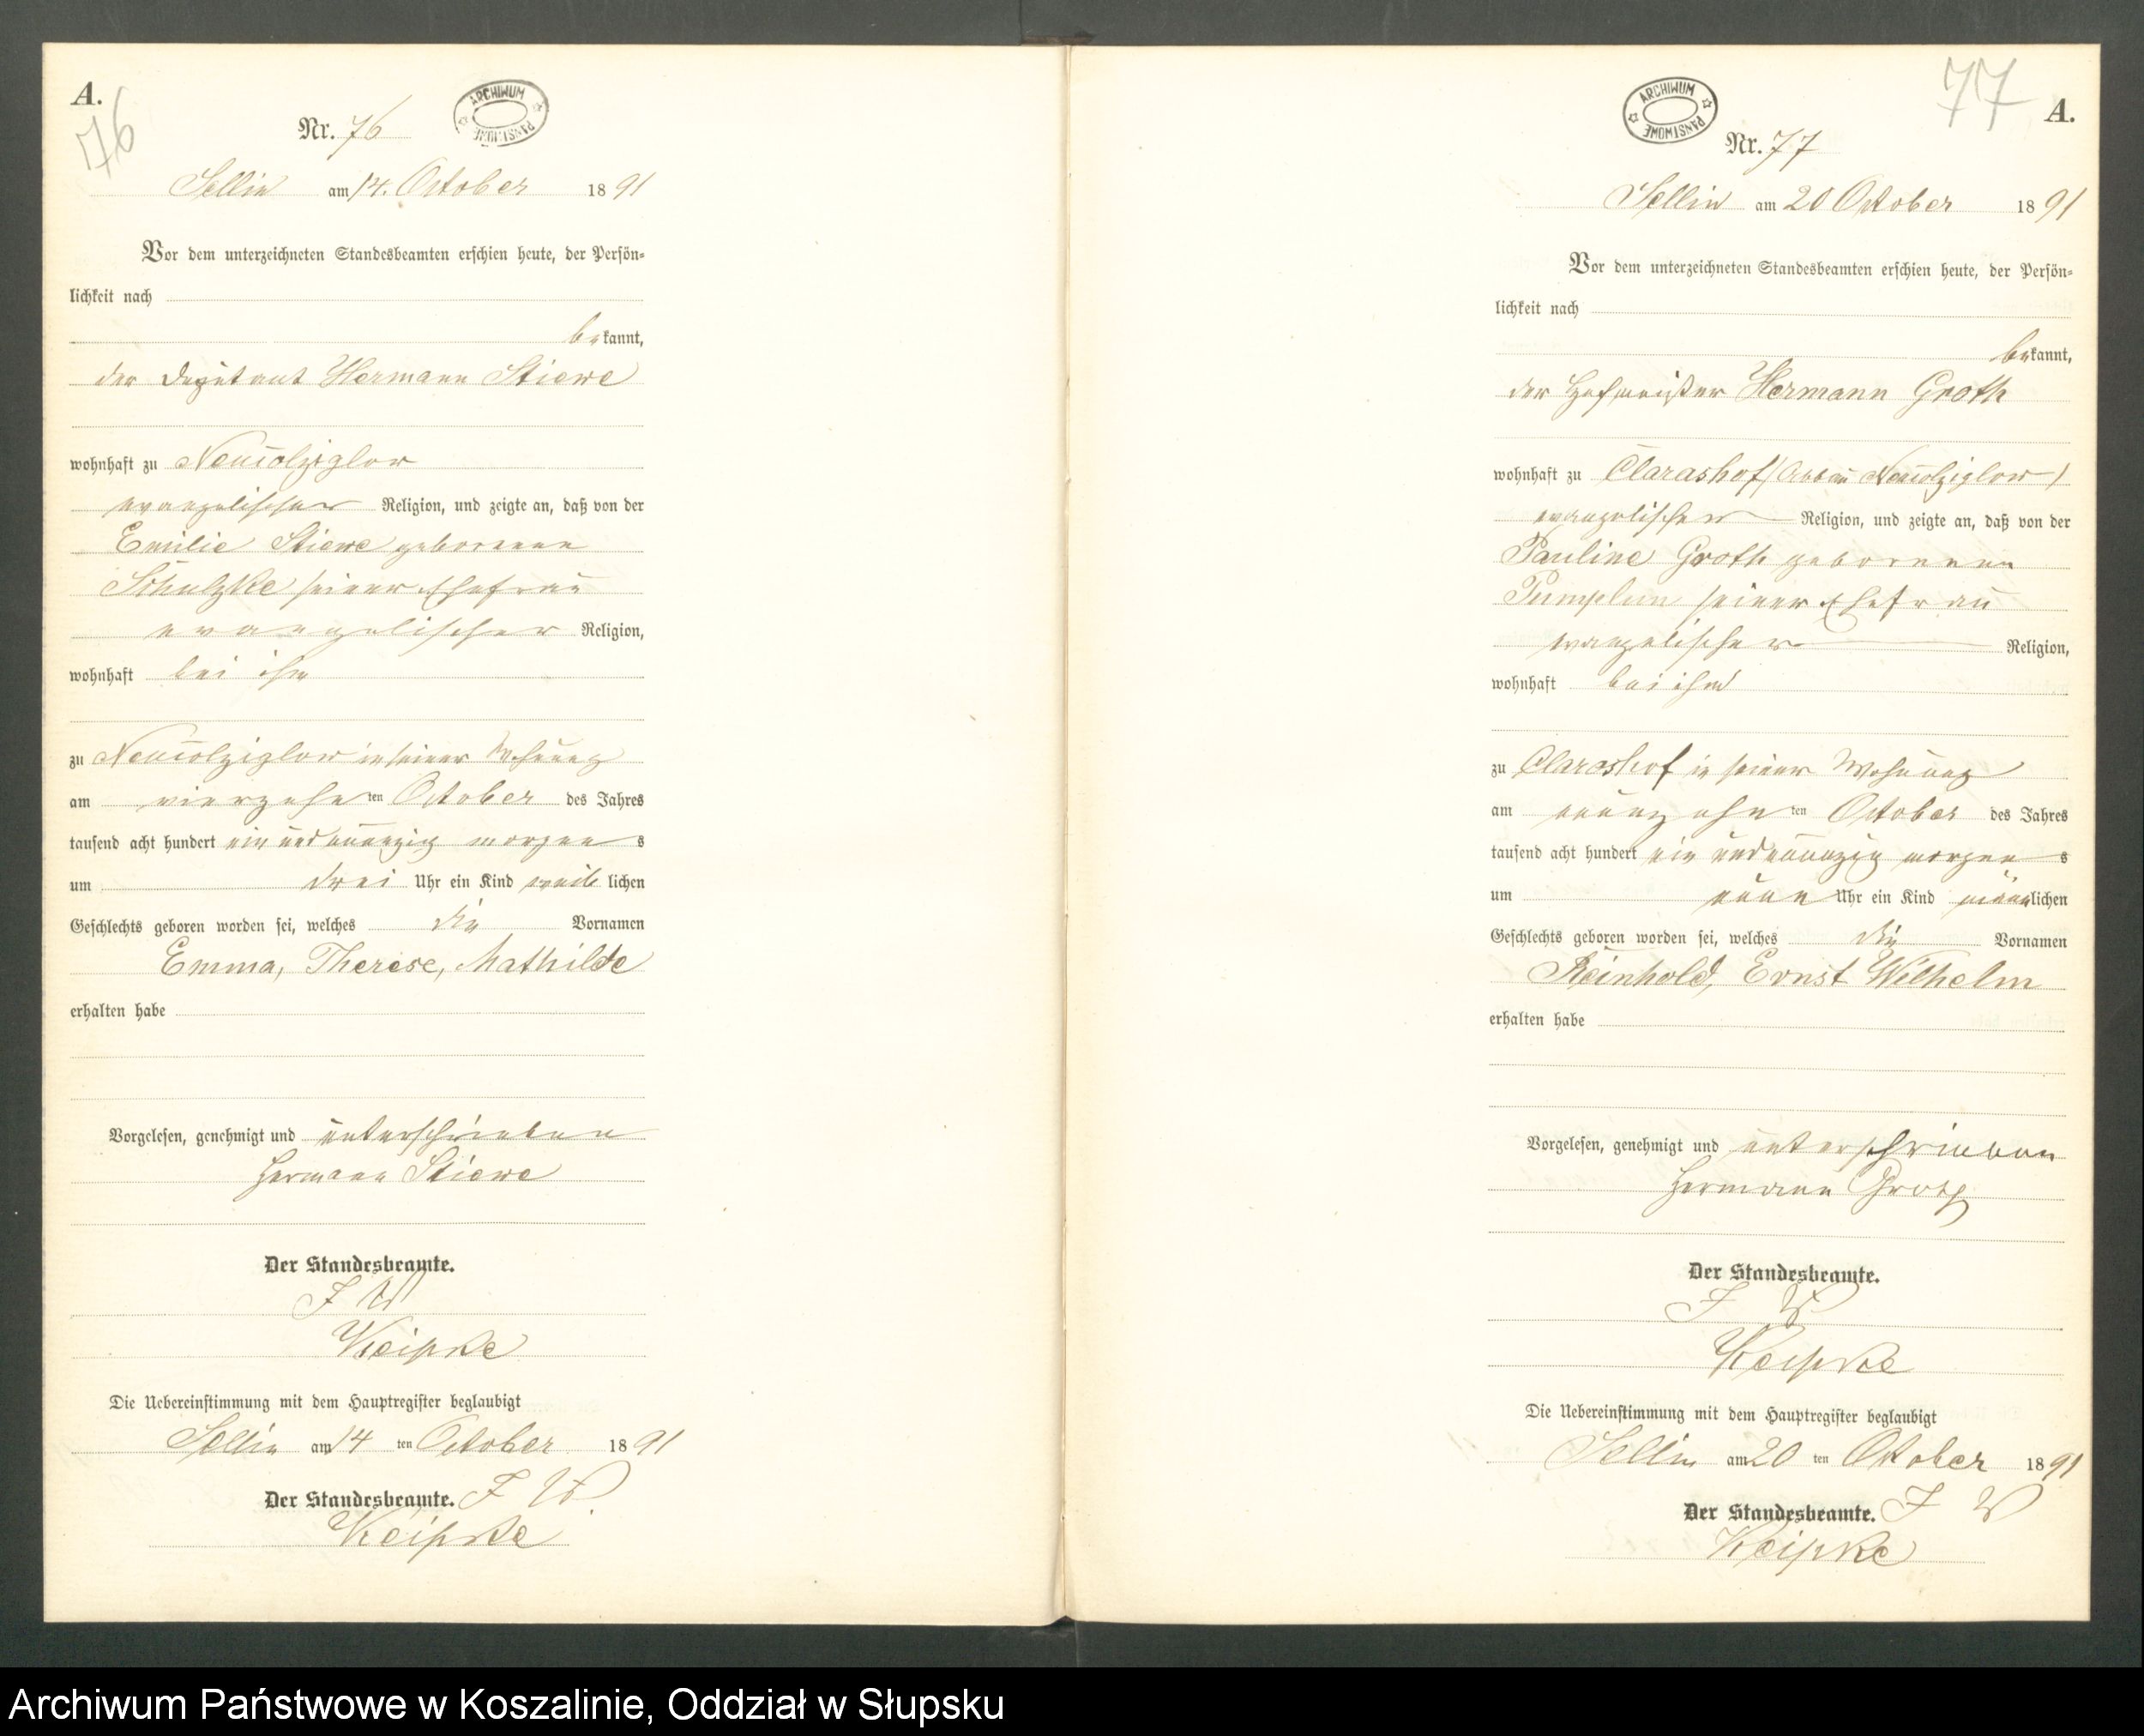 A.
76
ARCHIWUM PAŃSTWOWE
Nr. 76
Sellin am 14. October 1891
Vor dem unterzeichneten Standesbeamten erschien heute, der Persön-
lichkeit nach
bekannt,
der Deputant Hermann Stiewe
wohnhaft zu Neucolziglow
evangelischer Religion, und zeigte an, daß von der
Emilie Stiewe geborenen
Schulzke seiner Ehefrau
evangelischer Religion,
wohnhaft bei ihm
zu Neucolziglow in seiner Wohnung
am vierzehnten October des Jahres
tausend acht hundert ein und neunzig morgens
um drei Uhr ein Kind weiblichen
Geschlechts geboren worden sei, welches die Vornamen
Emma, Therese, Mathilde
erhalten habe
Vorgelesen, genehmigt und unterschrieben
Hermann Stiewe
Der Standesbeamte.
I W
Keipke
Die Uebereinstimmung mit dem Hauptregister beglaubigt
Sellin am 14 ten October 1891
Der Standesbeamte. I W.
Keipke
77
A.
ARCHIWUM PAŃSTWOWE
Nr. 77
Sellin am 20 October 1891
Vor dem unterzeichneten Standesbeamten erschien heute, der Persön-
lichkeit nach
bekannt,
der Hofmeister Hermann Groth
wohnhaft zu Clarashof (Abbau Neucolziglow)
evangelischer Religion, und zeigte an, daß von der
Pauline Groth geborenen
Pumplun seiner Ehefrau
evangelischer Religion,
wohnhaft bei ihm
zu Clarashof in seiner Wohnung
am neunzehnten October des Jahres
tausend acht hundert ein und neunzig morgens
um neun Uhr ein Kind männlichen
Geschlechts geboren worden sei, welches die Vornamen
Reinhold, Ernst Wilhelm
erhalten habe
Vorgelesen, genehmigt und unterschrieben
Hermann Groth
Der Standesbeamte.
I W
Keipke
Die Uebereinstimmung mit dem Hauptregister beglaubigt
Sellin am 20 ten October 1891
Der Standesbeamte. I W
Keipke
Archiwum Państwowe w Koszalinie, Oddział w Słupsku